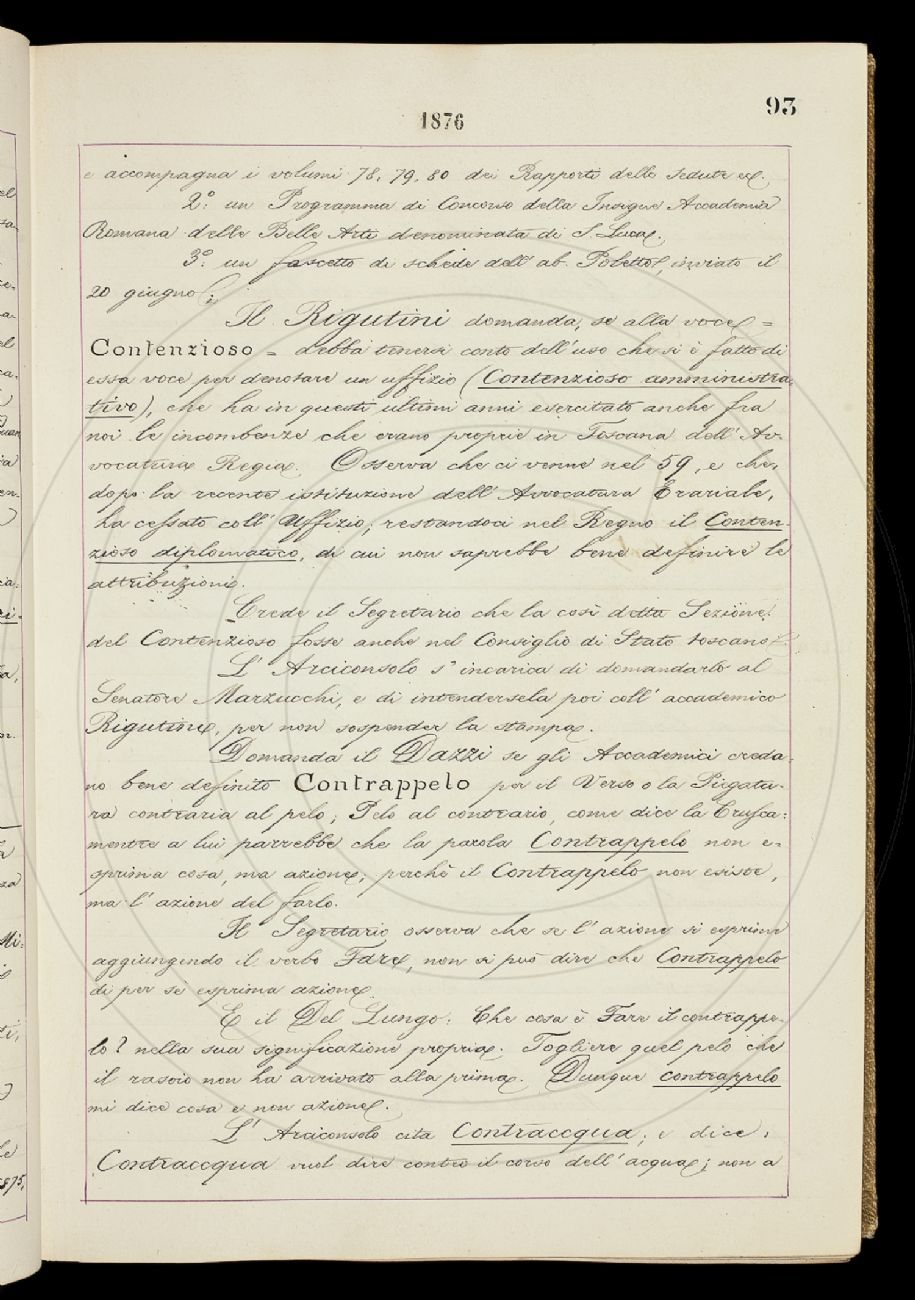 93
1876
e accompagna i volumi 78, 79, 80 dei Rapporti delle sedute ec.
2.° un Programma di Concorso della Insigne Accademia
Romana delle Belle Arti denominata di S. Luca.
3.° un fascetto di schede dell' ab. inviato il
20 giugno.
Il Rigutini domanda, se alla voce =
Contenzioso = debba tenersi conto dell' uso che si è fatto di
essa voce per denotare un uffizio (Contenzioso amministra-
tivo), che ha in questi ultimi anni esercitato anche fra
noi le incombenze che erano proprie in Toscana dell' Av-
vocatura Regia. Osserva che ci venne nel 59, e che,
dopo la recente istituzione dell' Avvocatura Erariale,
ha cessato coll' Uffizio; restandoci nel Regno il Conten-
zioso diplomatico, di cui non saprebbe bene definire le
attribuzioni.
Crede il Segretario che la così detta Sezione
del Contenzioso fosse anche nel Consiglio di Stato toscano.
L' Arciconsolo s' incarica di domandarlo al
Senatore Marzucchi, e di intendersela poi coll' accademico
Rigutini, per non sospender la stampa.
Domanda il Dazzi se gli Accademici creda-
no bene definito Contrappelo per il Verso o la Piegatu-
ra contraria al pelo; Pelo al contrario, come dice la Crusca:
mentre a lui parrebbe che la parola Contrappelo non e-
sprima cosa, ma azione; perchè il Contrappelo non esiste,
ma l' azione del farlo.
Il Segretario osserva che se l' azione si esprime
aggiungendo il verbo Fare, non si può dire che Contrappelo
di per sè esprima azione.
E il Del Lungo: Che cosa è Fare il contrappe-
lo? nella sua significazione propria. Togliere quel pelo che
il rasoio non ha arrivato alla prima. Dunque contrappelo
mi dice cosa e non azione.
L' Arciconsolo cita Contraccqua; e dice:
Contraccqua vuol dire contro il corso dell' acqua; non a